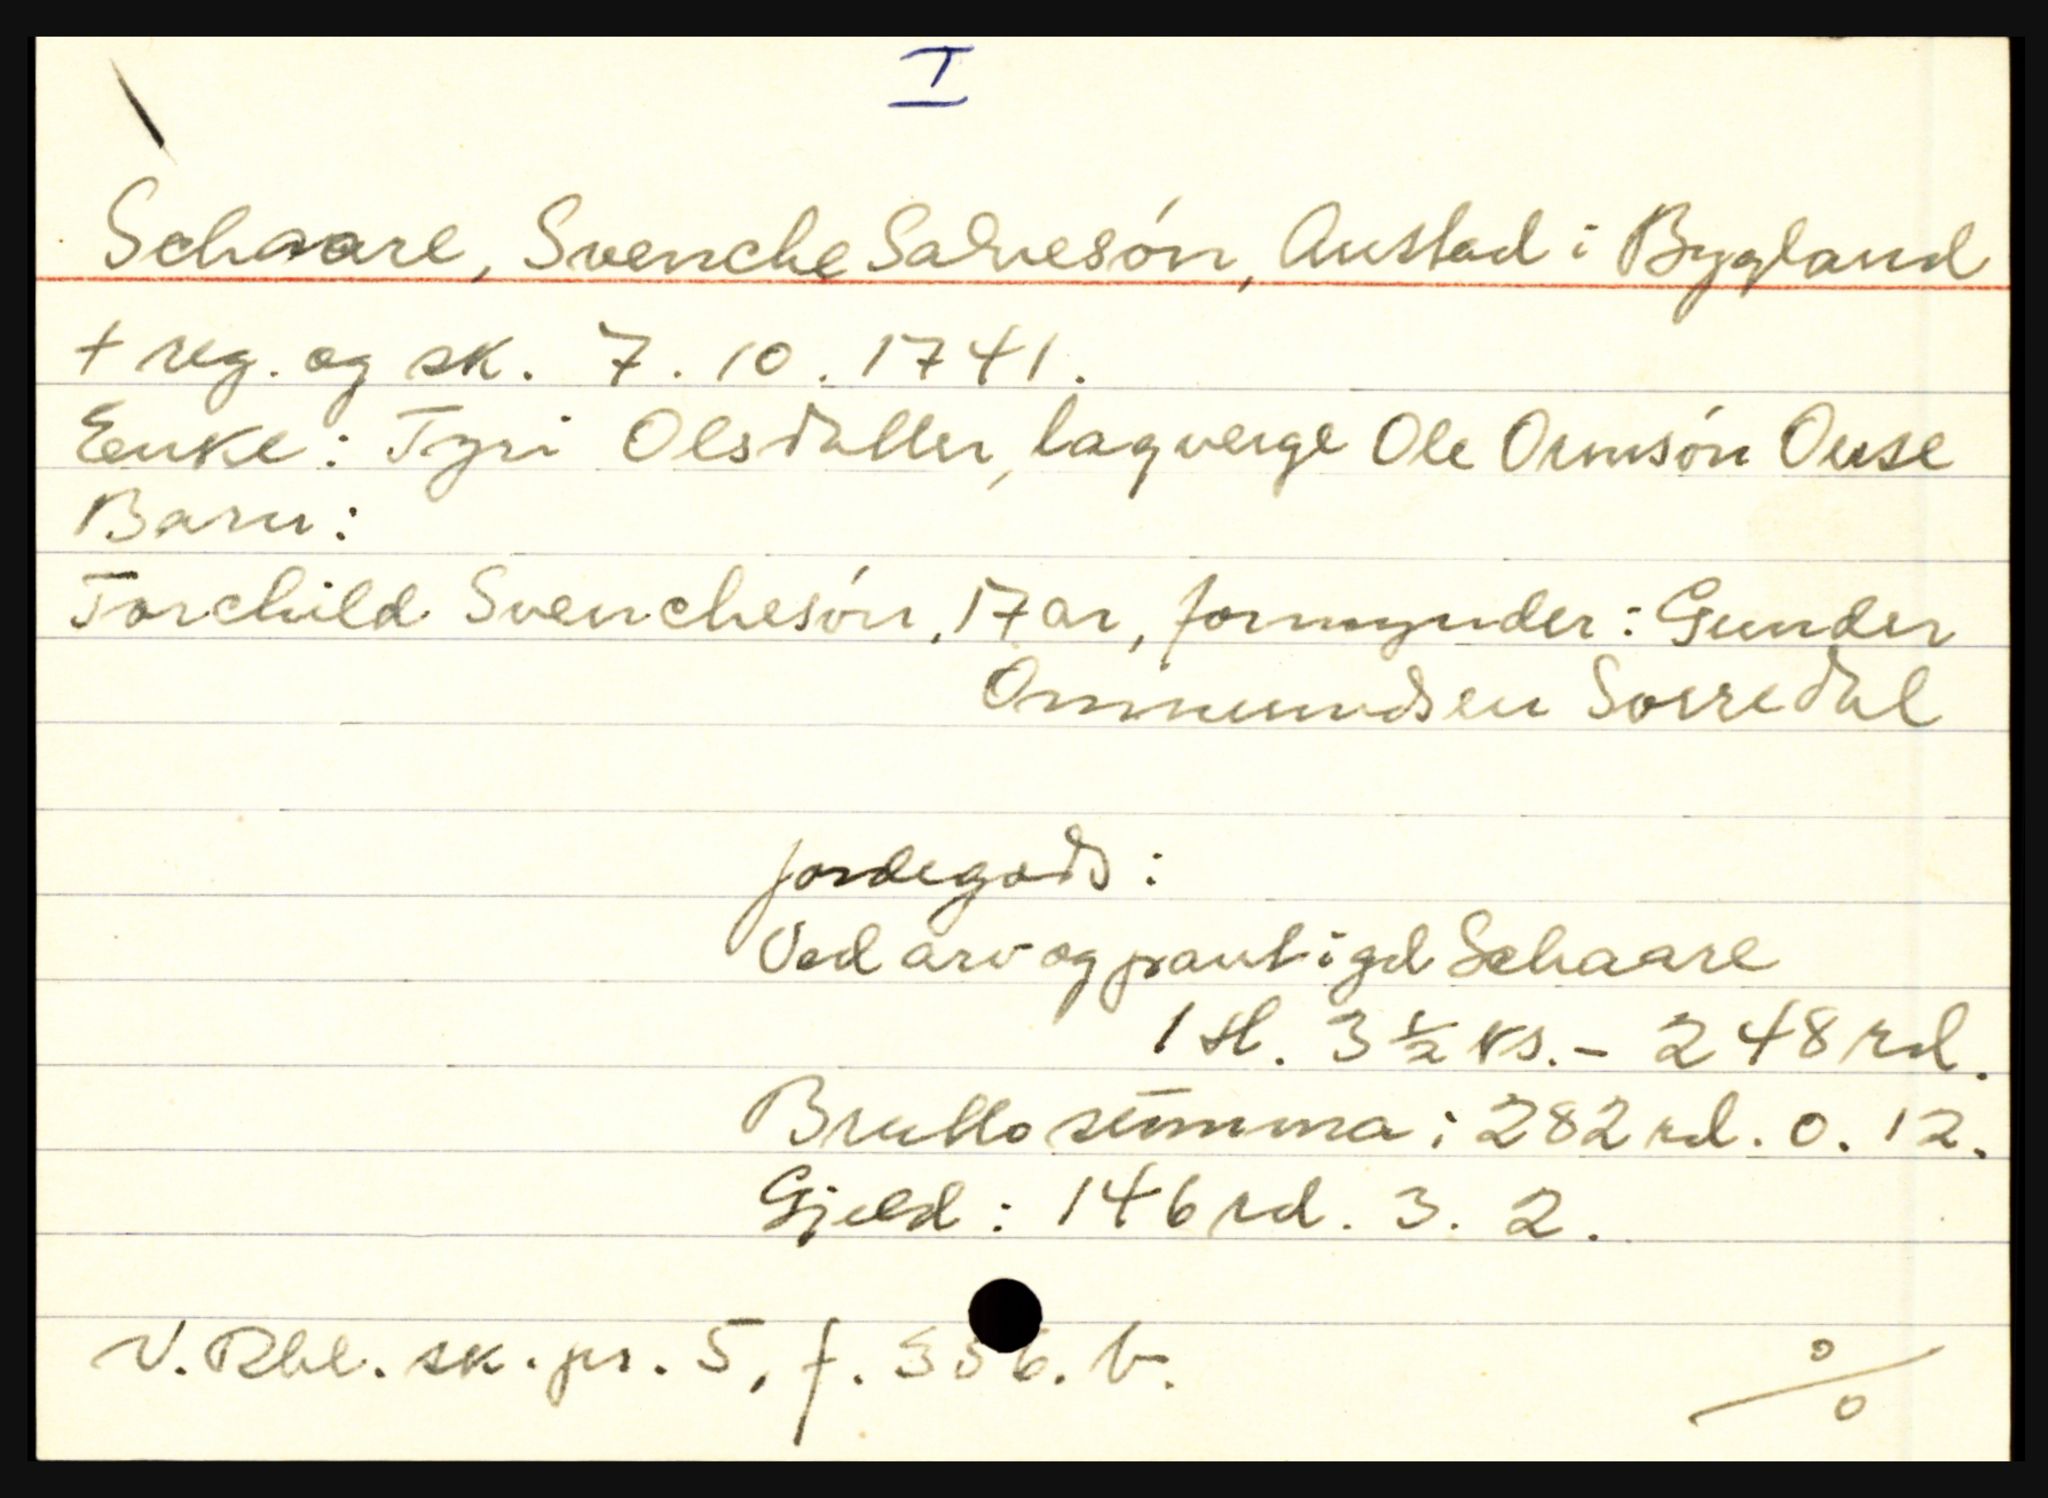 I
Schaare, Svenche Salvesón, Austad i Bygland
+ reg. og sk. 7. 10. 1741.
Enke: Tyri Olsdatter, lagverge Ole Ormsón Ouse
Barn:
Torchild Svenchesón, 17 ar, formynder: Gunder
Ommundsen Sorredal
Jordegods:
Ved arv og pant i gd Schaare
1 hl. 3 ½ ks. - 248 rd.
Brutto summa: 282 rd. 0. 12.
Gjeld: 146 rd. 3. 2.
V. Rbl. sk. pr. 5, f. 356. b.